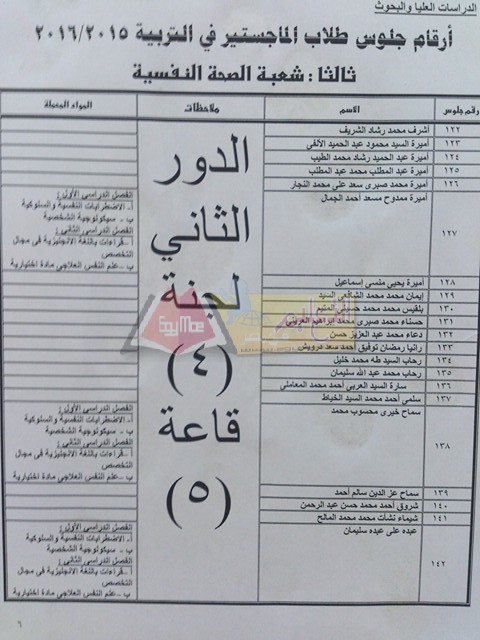 الدراسات العليا والبحوث
أرقام جلوس طلاب الماجستير في التربية ٢٠١٦/٢٠١٥
ثالثا: شعبة الصحة النفسية
رقم جلوس الاسم ملاحظات المواد المحملة
١٢٢ أشرف محمد رشاد الشريف
١٢٣ أميرة السيد محمود عبد الحميد الألفي
١٢٤ أميرة عبد الحميد رشاد محمد الطيب
١٢٥ أميرة عبد المطلب محمد عبد المطلب
١٢٦ أميرة محمد صبرى سعد على محمد النجار
١٢٧ أميرة ممدوح مسعد أحمد الجمال
الفصل الدراسي الأول:
أ- الاضطرابات النفسية والسلوكية
ب - سيكولوجية الشخصية
الفصل الدراسي الثاني:
أ- قراءات باللغة الانجليزية في مجال
التخصص
ب - علم النفس العلاجي مادة اختيارية
١٢٨ أميرة يحيى منسي إسماعيل
١٢٩ إيمان محمد محمد الشافعي السيد
١٣٠ بلقيس محمد محمد
١٣١ حسناء محمد صبرى محمد ابراهيم العزبي
١٣٢ دعاء محمد عبد العزيز حسن
١٣٣ رانيا رمضان توفيق أحمد سعد درويش
١٣٤ رحاب السيد طه محمد خليل
١٣٥ رحاب محمد عبد الله سليمان
١٣٦ سارة السيد العربي أحمد محمد المعاملي
١٣٧ سلمى أحمد محمد السيد الخياط
١٣٨ سماح خيرى محسوب محمد
الفصل الدراسي الأول:
أ- الاضطرابات النفسية والسلوكية
ب - سيكولوجية الشخصية
الفصل الدراسي الثاني:
أ- قراءات باللغة الانجليزية في مجال
التخصص
ب - علم النفس العلاجي مادة اختيارية
١٣٩ سماح عز الدين سالم أحمد
١٤٠ شروق أحمد محمد حسن عبد الرحمن
١٤١ شيماء نشأت محمد محمد المالح
١٤٢ عبده على عبده سليمان
الفصل الدراسي الأول:
أ- الاضطرابات النفسية والسلوكية
ب - سيكولوجية الشخصية
الفصل الدراسي الثاني:
أ- قراءات باللغة الانجليزية في مجال
التخصص
ب - علم النفس العلاجي مادة اختيارية
الدور
الثاني
لجنة
(٤)
قاعة
(٥)
٦